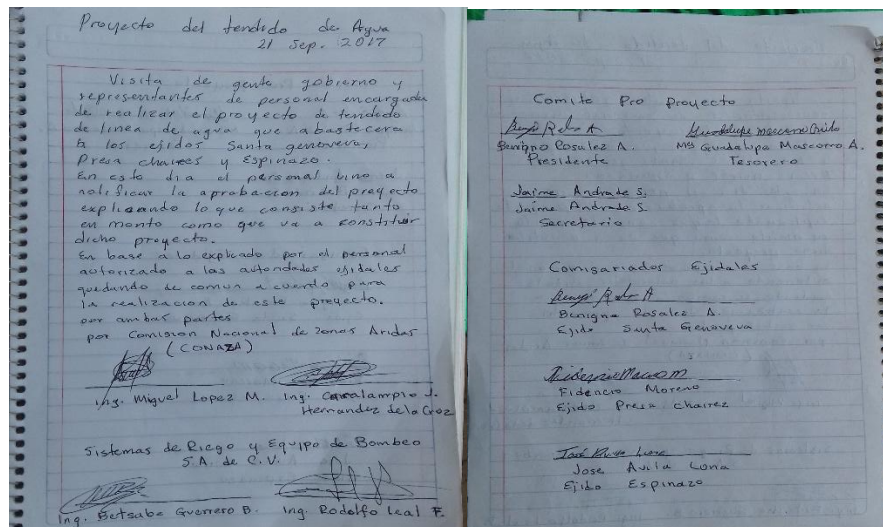 Proyecto del tendido de Agua
21 Sep. 2017
Visita de gente gobierno y
representantes de personal encargada
de realizar el proyecto de tendido
de linea de agua que abastecera
a los ejidos Santa genoveva,
Presa chairez y Espinazo.
En este dia el personal bino a
notificar la aprobacion del proyecto
explicando lo que consiste tanto
en monto como que va a constituir
dicho proyecto.
En base a lo explicado por el personal
autorizado a las autoridades ejidales
quedando de comun acuerdo para
la realizacion de este proyecto.
por ambas partes
por Comision Nacional de zonas Aridas
(CONAZA)
Ing. Miguel Lopez M. Ing. Caralampio J.
Hernandez de la Croz
Sistemas de Riego y Equipo de Bombeo
S.A. de C.V.
Ing. Betsabe Guerrero B. Ing. Rodolfo Leal F.
Comite Pro Proyecto
Benigno Rosalez A. Ma Guadalupe Mascorro A.
Presidente Tesorero
Jaime Andrade S.
Jaime Andrade S.
Secretario
Comisariados Ejidales
Benigno Rosalez A.
Ejido Santa Genoveva
Fidencio Moreno
Ejido Presa chairez
Jose Avila Luna
Jose Avila Luna
Ejido Espinazo